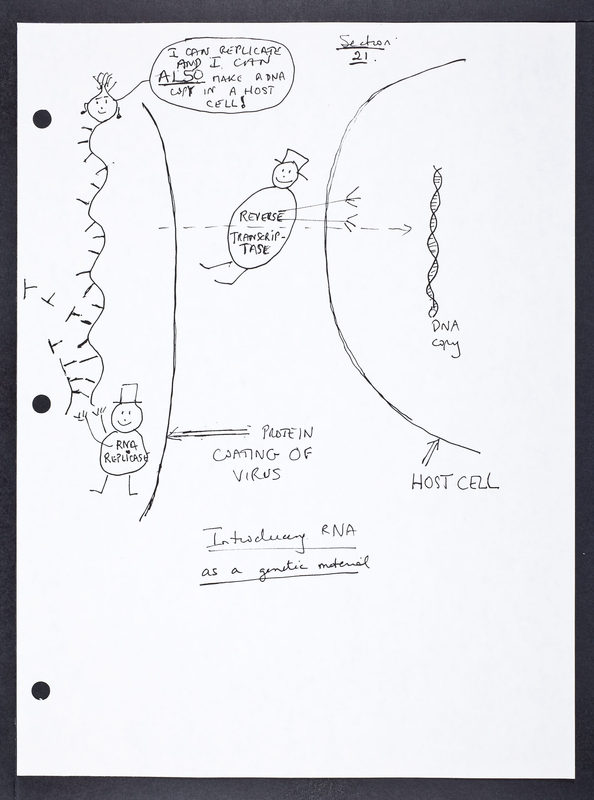 Section
21.
I CAN REPLICATE
AND I CAN
ALSO MAKE A DNA
COPY IN A HOST
CELL!
REVERSE
TRANSCRIP-
TASE
DNA
copy
RNA
REPLICASE
PROTEIN
COATING OF
VIRUS
HOST CELL
Introducing RNA
as a genetic material